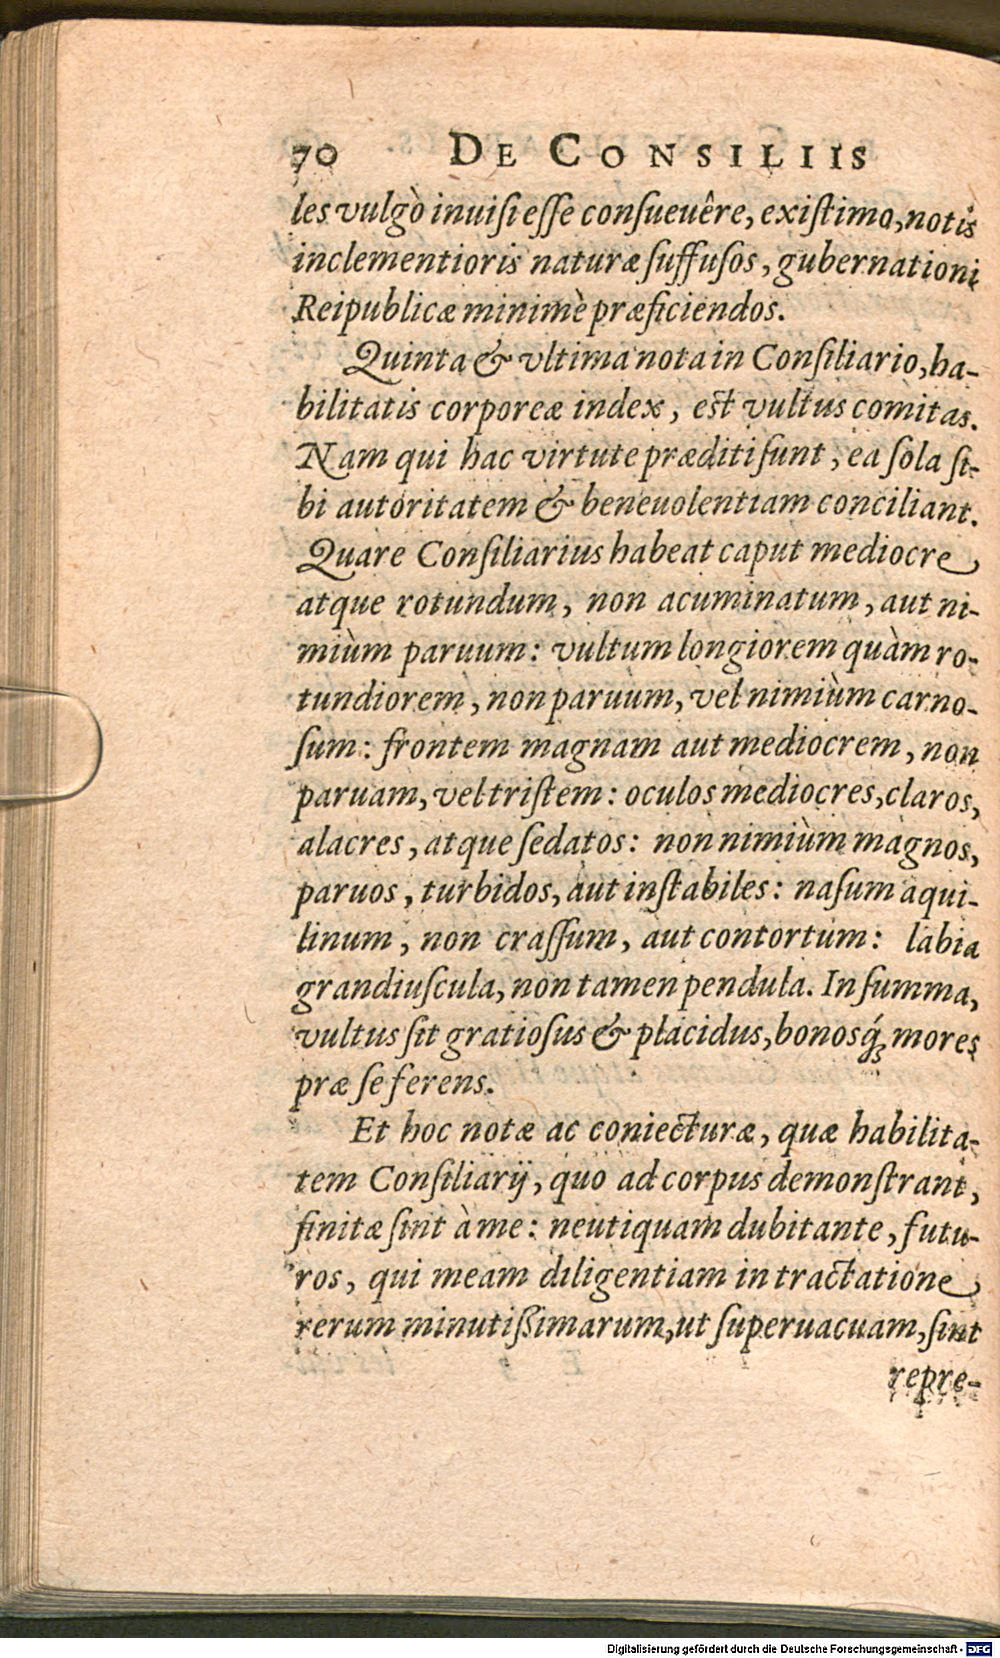 70 DE CONSILIIS
les vulgò inuiſi eſſe conſueuêre, exiſtimo, notis
inclementioris naturæ ſuffuſos, gubernationi
Reipublicæ minimè præficiendos.
Quinta & vltima nota in Conſiliario, ha-
bilitatis corporeæ index, eſt vultus comitas.
Nam qui hac virtute præditi ſunt, ea ſola ſi-
bi autoritatem & beneuolentiam conciliant.
Quare Conſiliarius habeat caput mediocre
atque rotundum, non acuminatum, aut ni-
miùm paruum: vultum longiorem quàm ro-
tundiorem, non paruum, vel nimiùm carno-
ſum: frontem magnam aut mediocrem, non
paruam, vel triſtem: oculos mediocres, claros,
alacres, atque ſedatos: non nimiùm magnos,
paruos, turbidos, aut inſtabiles: naſum aqui-
linum, non craſſum, aut contortum: labia
grandiuſcula, non tamen pendula. In ſumma,
vultus ſit gratioſus & placidus, bonosq́; mores
præ ſe ferens.
Et hoc notæ ac coniecturæ, quæ habilita-
tem Conſiliarij, quo ad corpus demonſtrant,
finitæ ſint à me: neutiquam dubitante, futu-
ros, qui meam diligentiam in tractatione
rerum minutißimarum, ut ſuperuacuam, ſint
repre-
Digitalisierung gefördert durch die Deutsche Forschungsgemeinschaft - DFG